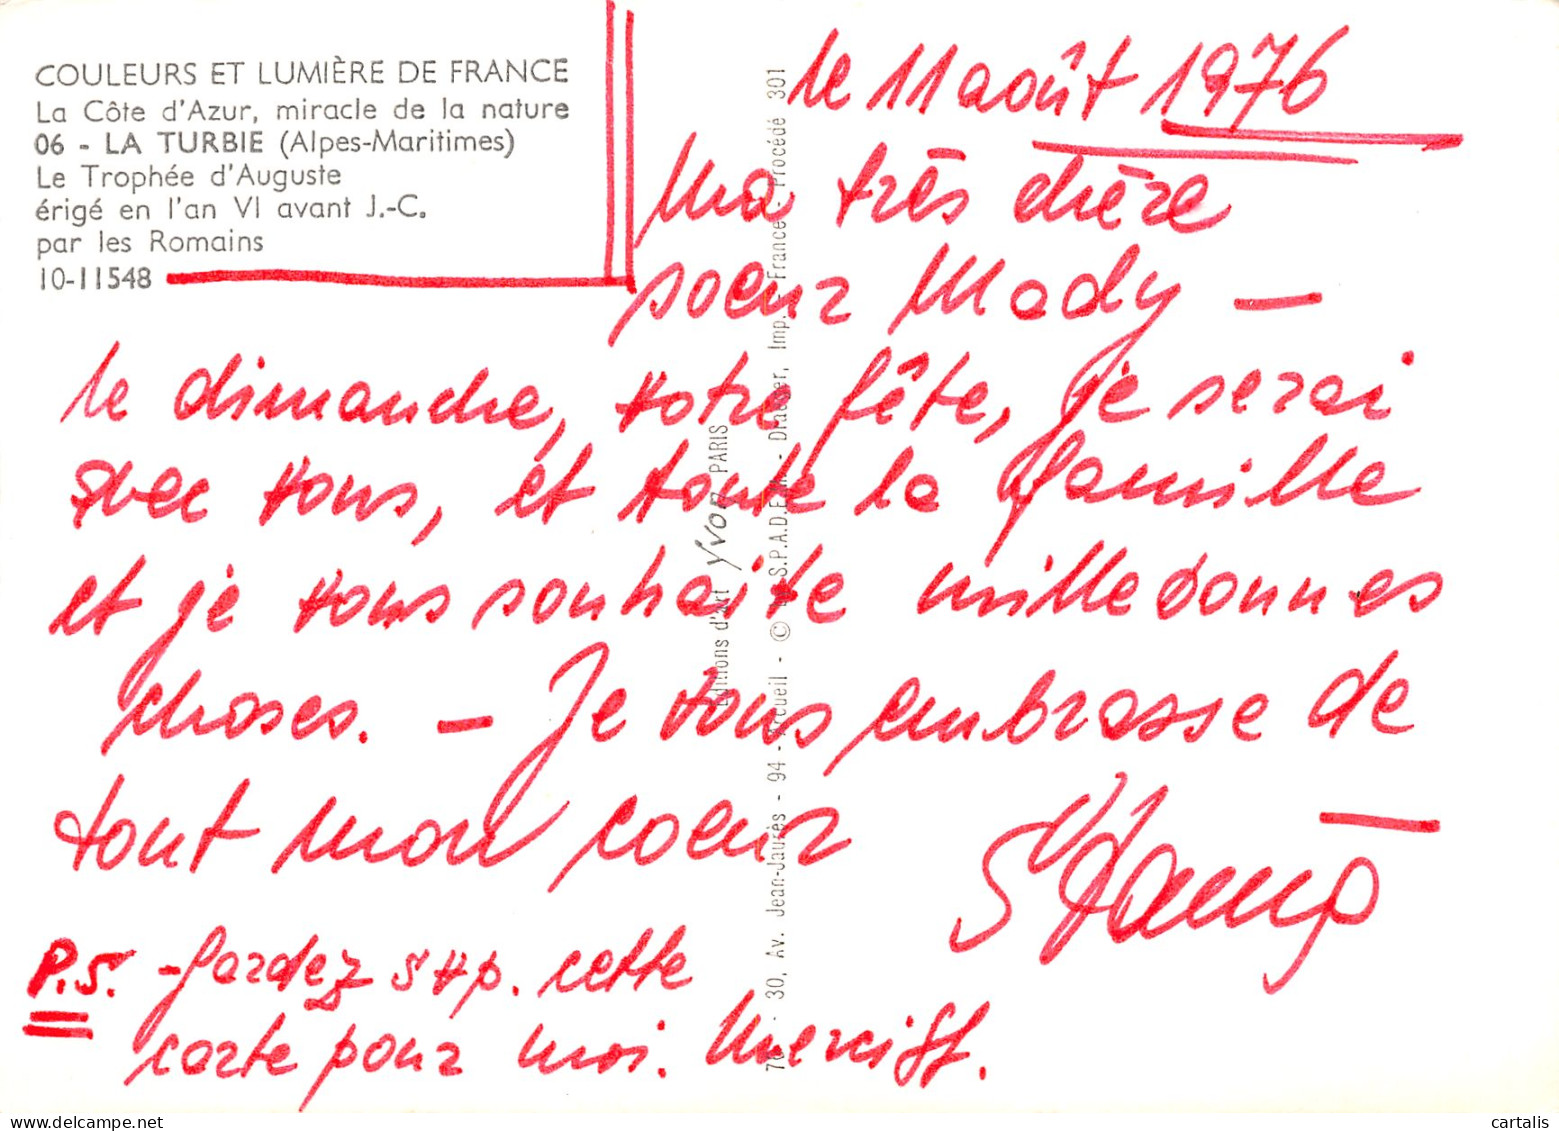 COULEURS ET LUMIÈRE DE FRANCE
La Côte d'Azur, miracle de la nature
06 - LA TURBIE (Alpes-Maritimes)
Le Trophée d'Auguste
érigé en l'an VI avant J.-C.
par les Romains
10-11548
le 11 août 1976
Ma très chère
soeur Mady —
le dimanche, votre fête, je serai
avec vous, et toute la famille
et je vous souhaite mille bonnes
choses. — Je vous embrasse de
tout mon coeur —
P.S. - Gardez svp. cette
carte pour moi. Merci
Editions d'Art Yvon PARIS
30, Av. Jean-Jaurès - 94 - Arcueil - © S.P.A.D.E.M. - Draeger, Imp. - France - Procédé 301
cartalis